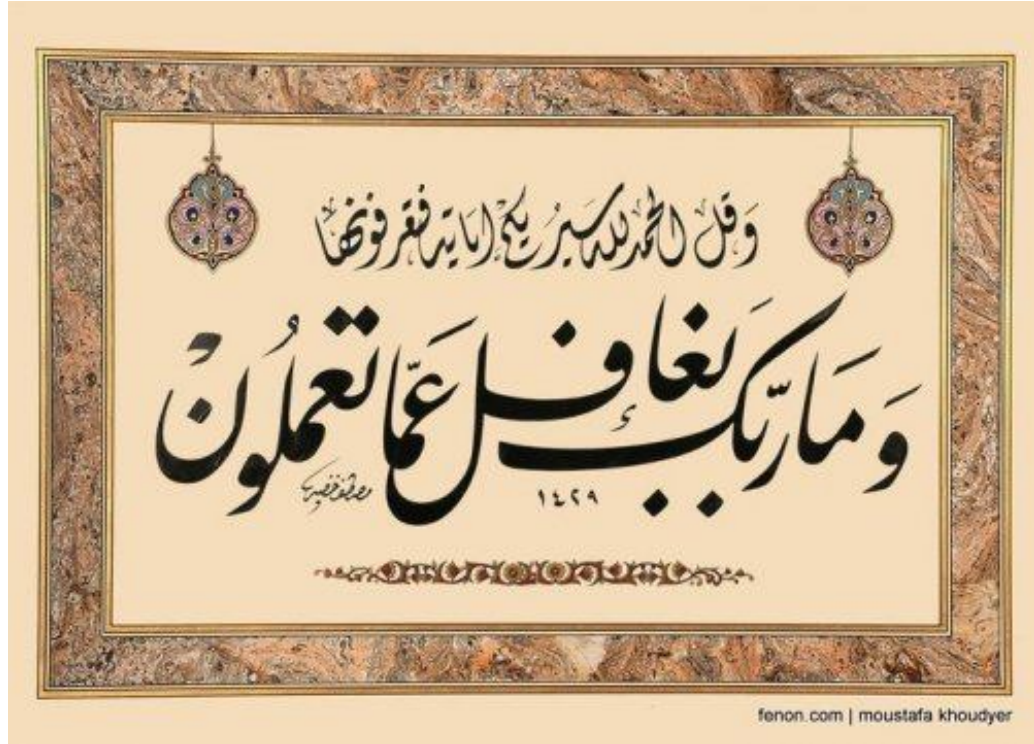 وَقل الحمد لله سيُريكم اياته فتعرفونها
وَمَا رَبّكَ بغافِل عَمّا تعملُونْ
١٤٢٩
مصطفى خضير
fenon.com | moustafa khoudyer